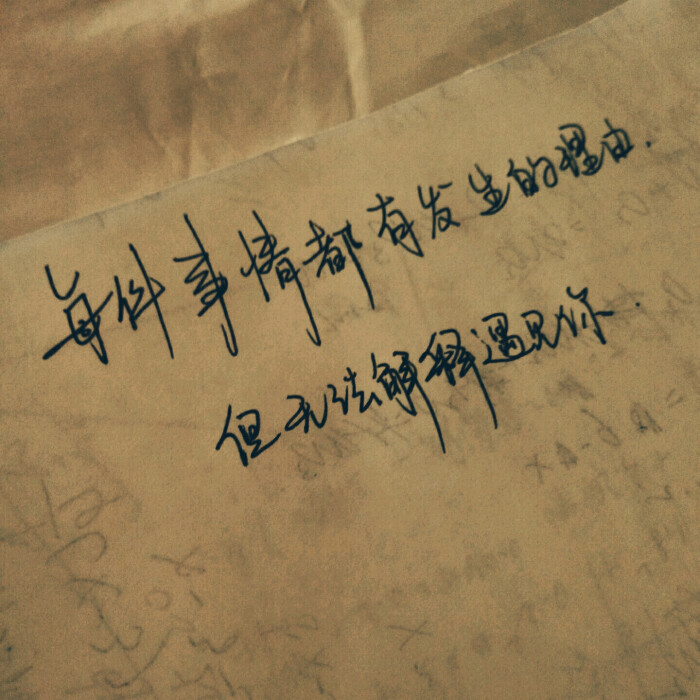 每件事情都有发生的理由.
但无法解释遇见你.